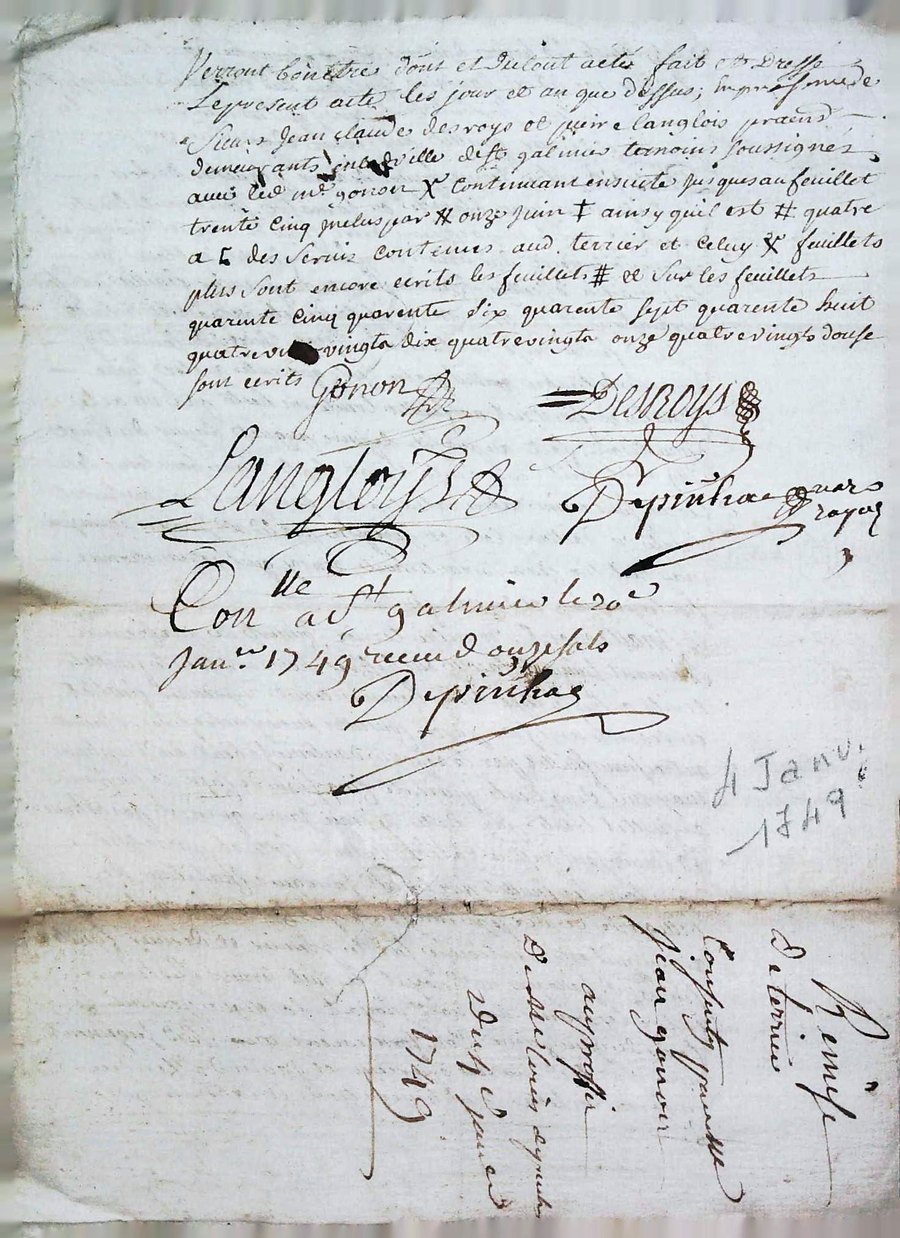 Verront bon etre dont et du tout acte fait et dressé
Le present acte les jour et an que dessus, en presence de
Sieurs Jean claude desroys et pierre langlois praticiens
demeurants en la ville de st galmier temoins soussignés
avec led me gonon X continuant ensuite jusques au feuillet
trente cinq inclus par # onze juin ‡ ainsy quil est # quatre
a des servis contenus aud. terrier et celuy X feuillets
plus sont encore ecrits les feuillets # et sur les feuillets
quarente cinq quarente six quarente sept quarente huit
quatre vingts dix quatrevingts onze quatrevingts douse
sont ecrits Gonon
=Desroys
Langloys
Depinhac
Conlle a St galmier le 20e
Janer 1749 receu d onze sols
Depinhac
4 Janv.
1749
Remise
De terrier
Consenty par me
Jean gonon
au proffit
De messire
Du 4 Janer
1749